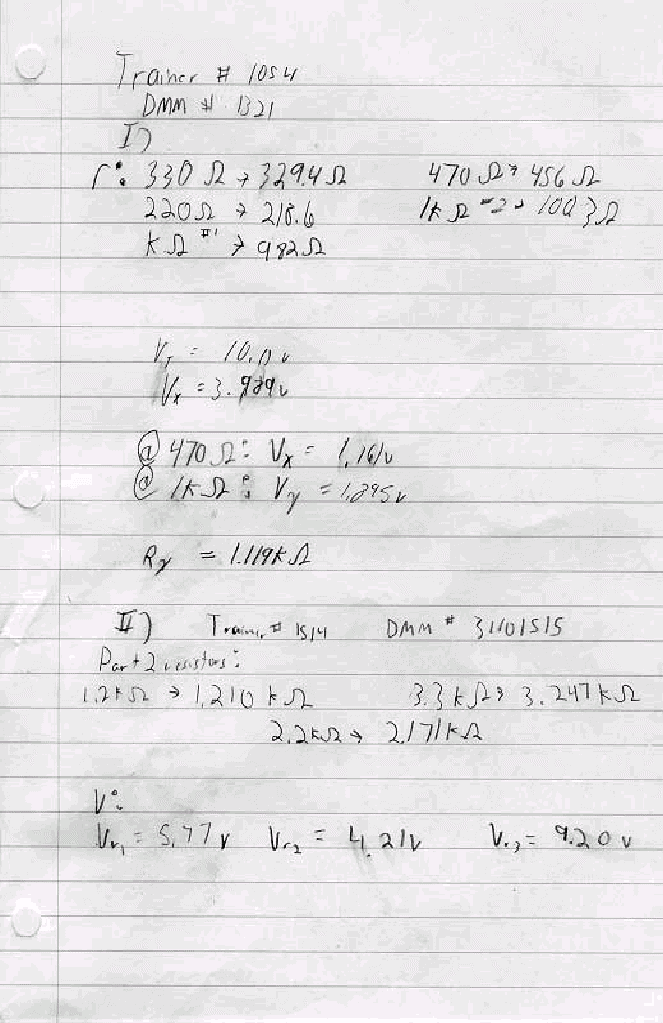 Trainer # 1054
DMM # B21
I)
r: 330 Ω → 329.4 Ω 470 Ω → 456 Ω
220Ω → 218.6 1k Ω #2 → 1003 Ω
kΩ #1 → 982Ω
V_T = 10.11 v
V_x = 3.989v
@ 470 Ω: V_x = 1.161v
@ 1kΩ: V_y = 1.295v
R_y = 1.119kΩ
II) DMM # 31101515
Part 2 resistors:
1.2kΩ → 1.210 kΩ 3.3 kΩ → 3.247 kΩ
2.2kΩ → 2.171kΩ
V:
V_r1 = 5.77 v V_r2 = 4.21v V_r3 = 9.20 v